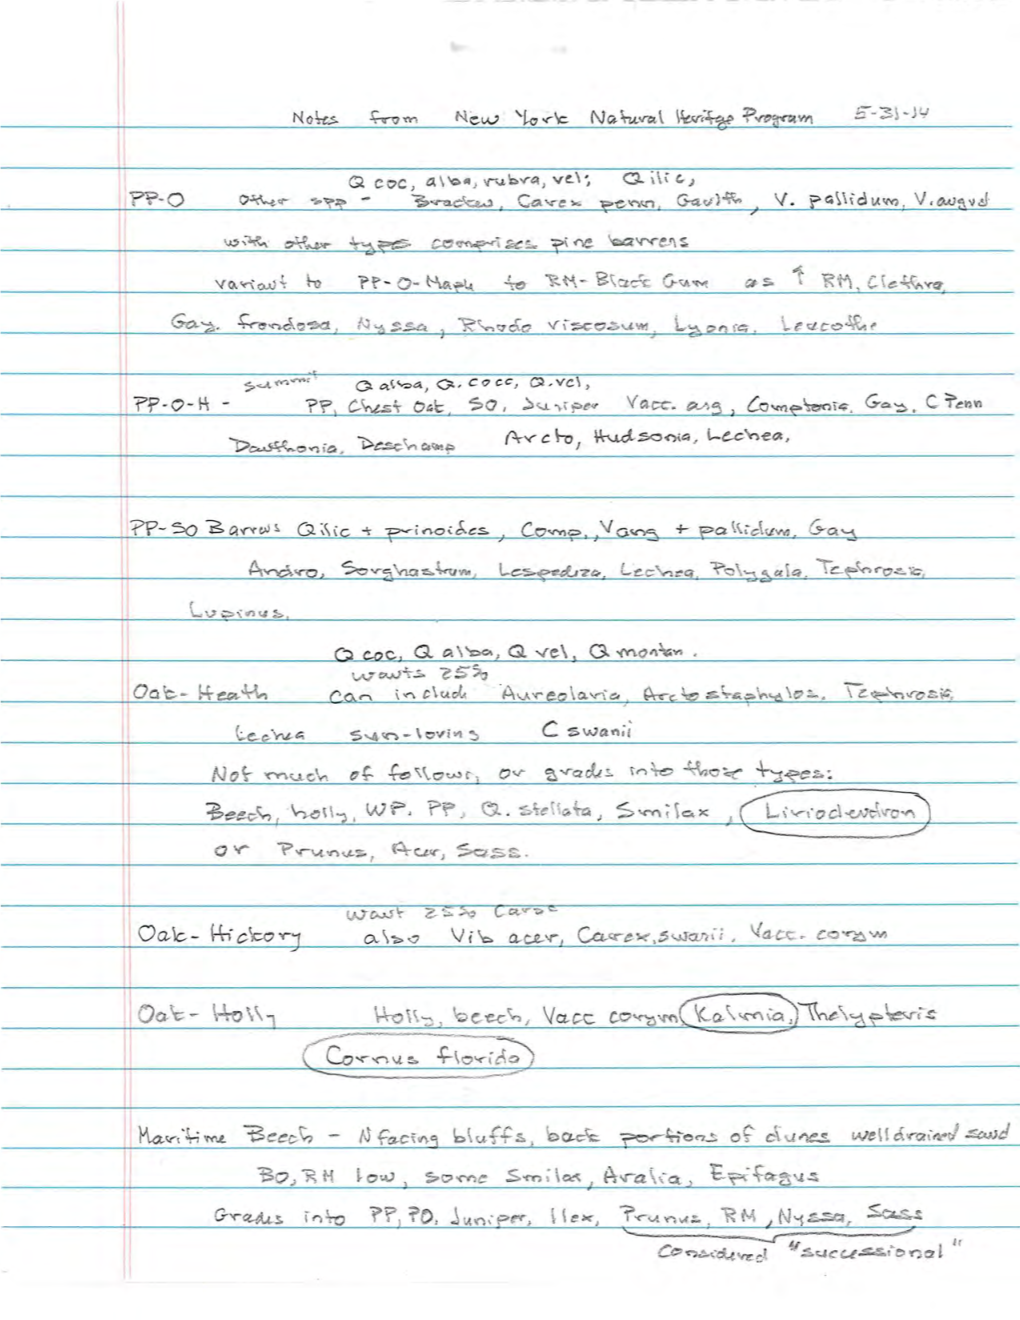 Notes from New York Natural Heritage Program 5-31-14
Q coc, alba, rubra, vel; Q ilic,
PP-O Other spp - Bracken, Carex penn, Gaylth, V. pallidum, V. angust
with other types comprises pine barrens
variant to PP-O-Maple to RM-Black Gum as ↑ RM, Clethra,
Gay. frondosa, Nyssa, Rhodo viscosum, Lyonia, Leucothe
summit Q alba, Q. cocc, Q. vel,
PP-O-H - PP, Chest Oak, SO, Juniper Vacc. ang, Comptonia, Gay, C Penn
Danthonia, Deschamp Arcto, Hudsonia, Lechea,
PP-SO Barrens Q ilic + prinoides, Comp., V ang + pallidum, Gay
Andro, Sorghastrum, Lespediza, Lechea, Polygala, Tephrosia,
Lupinus.
Q coc, Q alba, Q vel, Q montan.
wants 25%
Oak-Heath can include Aureolaria, Arctostaphylos, Tephrosia,
Lechea sun-loving C swanii
Not much of following or grades into those types:
Beech, holly, WP. PP, Q. stellata, Smilax, Liriodendron
or Prunus, Acer, Sass.
want 25% Carya
Oak-Hickory also Vib acer, Carex, swanii, Vacc. corym
Oak-Holly Holly, beech, Vacc corym Kalmia, Thelypteris
Cornus florida
Maritime Beech - N facing bluffs, back portions of dunes well drained sand
BO, RM low, some Smilax, Aralia, Epifagus
Grades into PP, PO, Juniper, Ilex, Prunus, RM, Nyssa, Sass
Considered "successional"